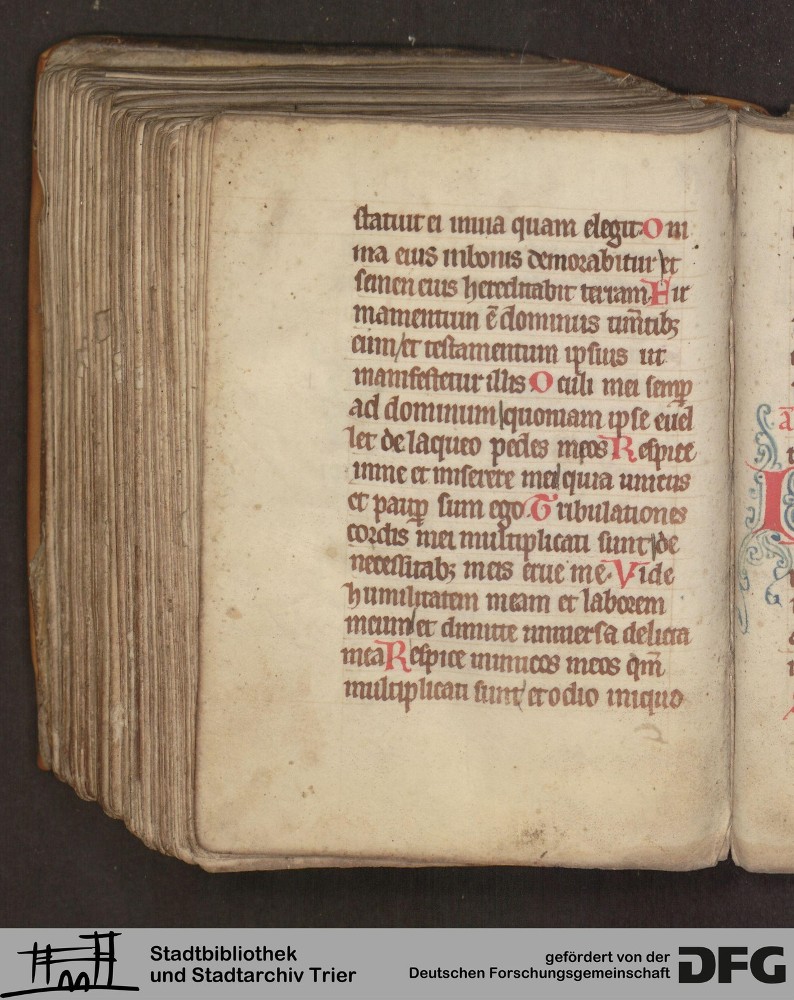 statuit ei in uia quam elegit. O ni
ma eius in bonis demorabitur / et
semen eius hereditabit terram F ir
mamentum ē dominus tim̄tibꝫ
eum / et testamentum ipsius ut
manifestetur illis O culi mei semꝑ
ad dominum / quoniam ipse euel
let de laqueo pedes meos R espice
in me et miserere mei / quia unicus
et paupꝑ sum ego. T ribulationes
cordis mei multiplicati sunt / de
necessitabꝫ meis erue me. V ide
humilitatem meam et laborem
meum / et dimitte uniuersa delicta
mea R espice inimicos meos qm̄
multiplicati sunt / et odio iniquo
Stadtbibliothek
und Stadtarchiv Trier
gefördert von der
Deutschen Forschungsgemeinschaft
DFG